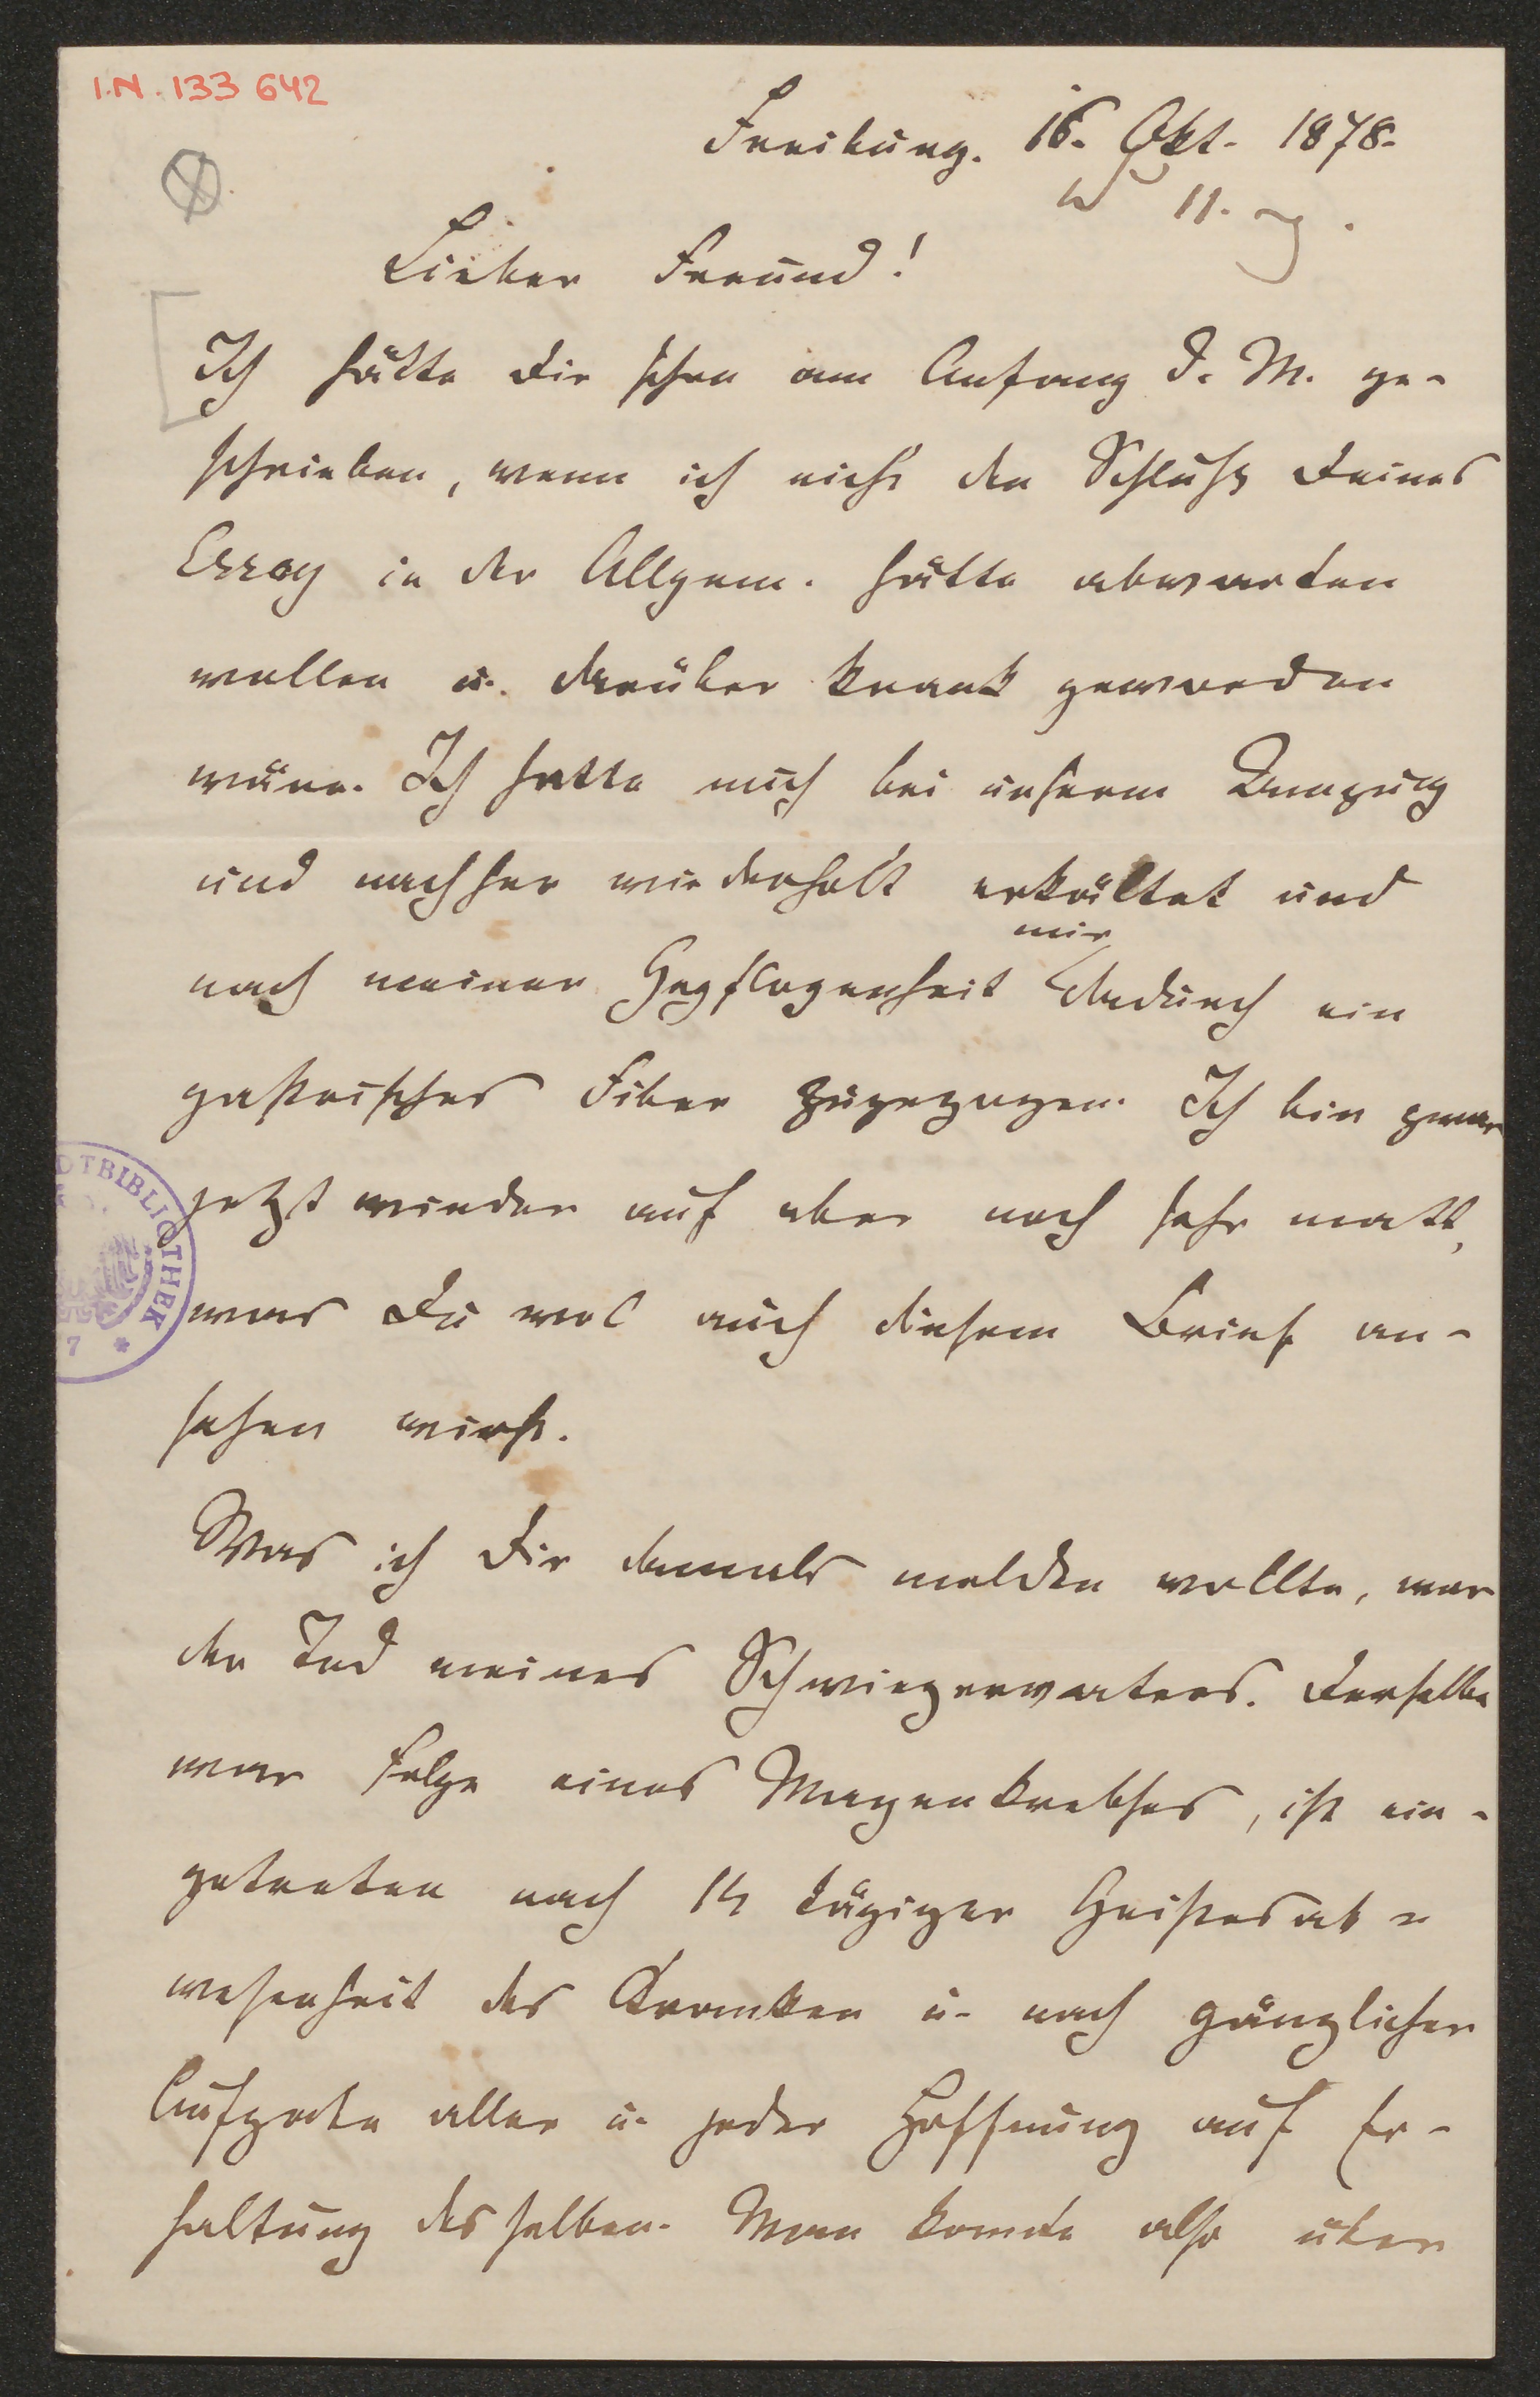 I.N. 133 642
Freiburg. 16. Okt. 1878.
11.
Lieber Freund!
Ich hätte Dir schon am Anfang d. M. ge-
schrieben, wenn ich nicht den Schluß Deines
Essay in der Allgem. hätte abwarten
wollen u. darüber krank geworden
wäre. Ich hatte mich bei unserem Umzug
und nachher wiederholt erkältet und
mir
nach meiner Gepflogenheit dadurch ein
gastrisches Fieber zugezogen. Ich bin zwar
jetzt wieder auf aber noch sehr matt,
was Du wol auch diesem Brief an-
sehen wirst.
Was ich Dir damals melden wollte, war
der Tod meines Schwiegervaters. Derselbe
war Folge eines Magenkrebses, ist ein-
getreten nach 14 tägiger Geistesab-
wesenheit des Kranken u. nach gänzlicher
Aufgabe aller u. jeder Hoffnung auf Er-
haltung desselben. Man konnte also über
DTBIBLIOTHEK
7 *